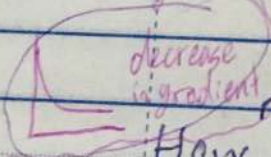 decrease
in gradient